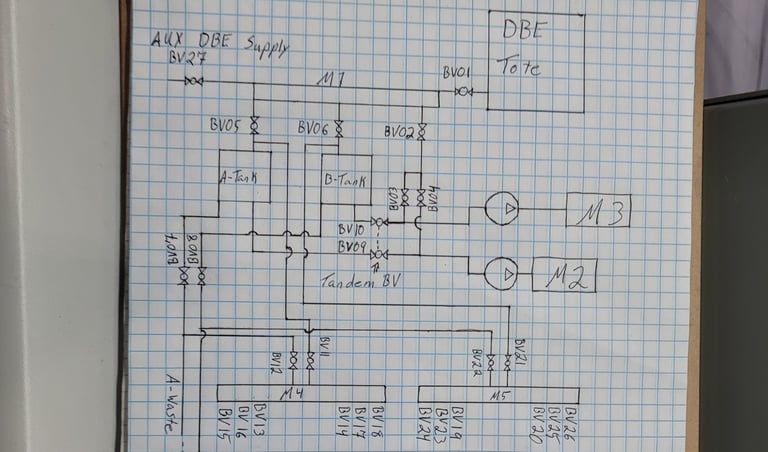 AUX DBE Supply
BV27
M1
BV01
DBE
Tote
BV05
BV06
BV02
A-Tank
B-Tank
BV03
BV04
BV10
BV09
M3
M2
BV07
BV08
Tandem BV
BV12
BV11
BV22
BV21
A-Waste
M4
M5
BV15
BV16
BV13
BV14
BV17
BV18
BV24
BV23
BV19
BV20
BV25
BV26